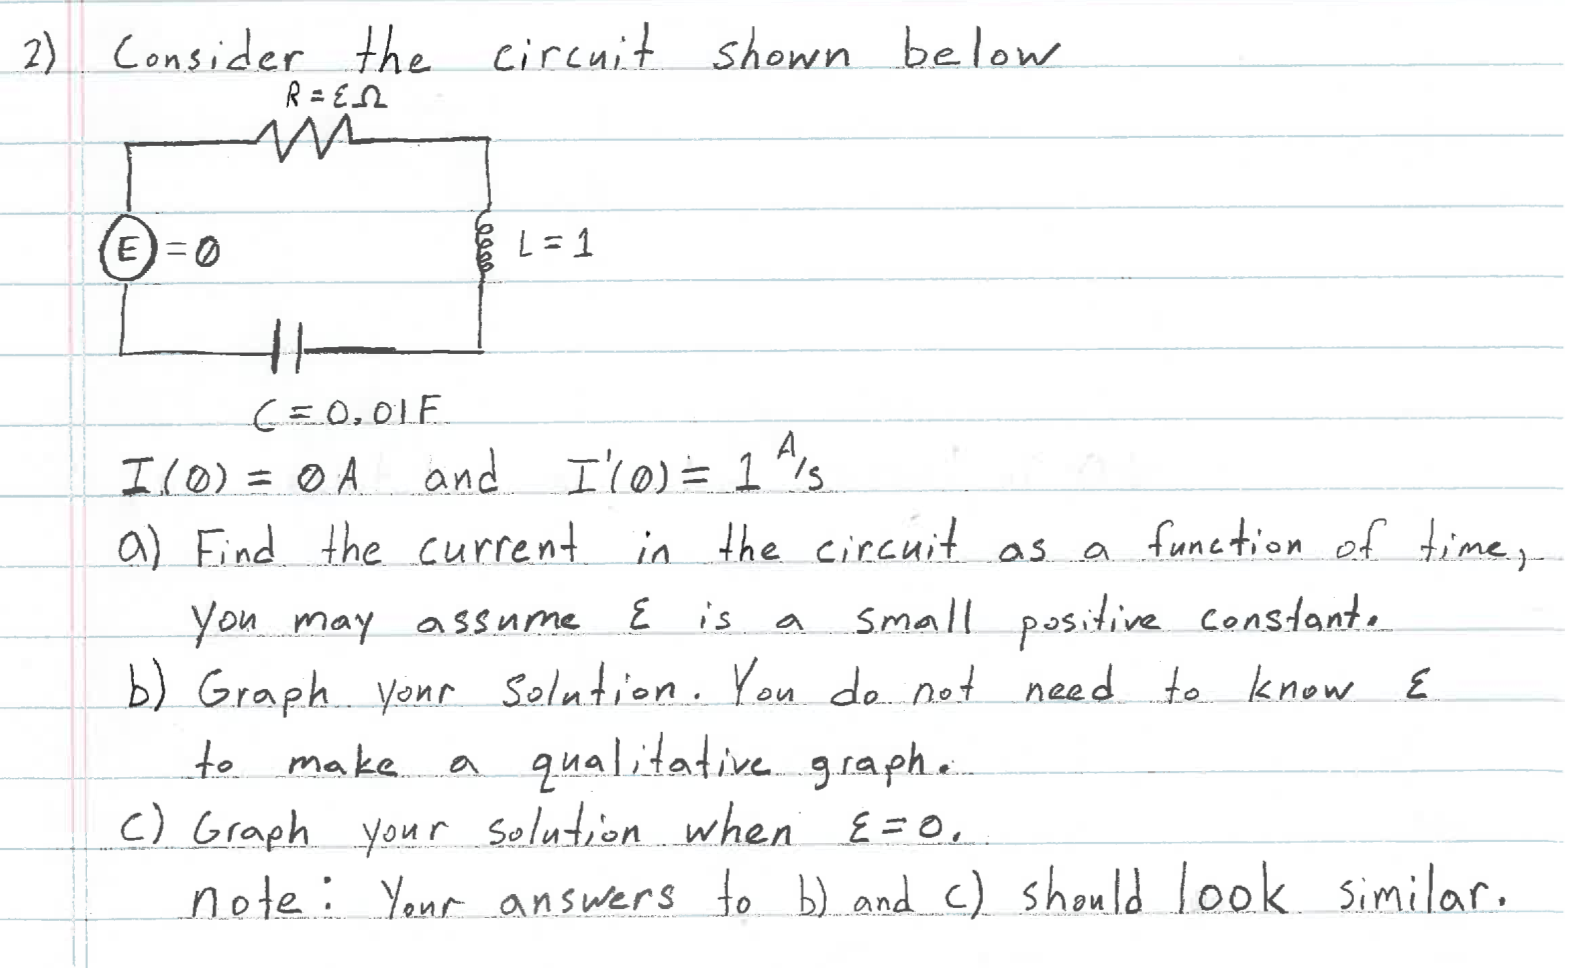 2) Consider the circuit shown below
R = ε Ω
E = 0
L = 1
C = 0.01F
I(0) = 0 A and I'(0) = 1 A/s
a) Find the current in the circuit as a function of time,
you may assume ε is a small positive constant.
b) Graph your solution. You do not need to know ε
to make a qualitative graph.
c) Graph your solution when ε = 0.
note: Your answers to b) and c) should look similar.